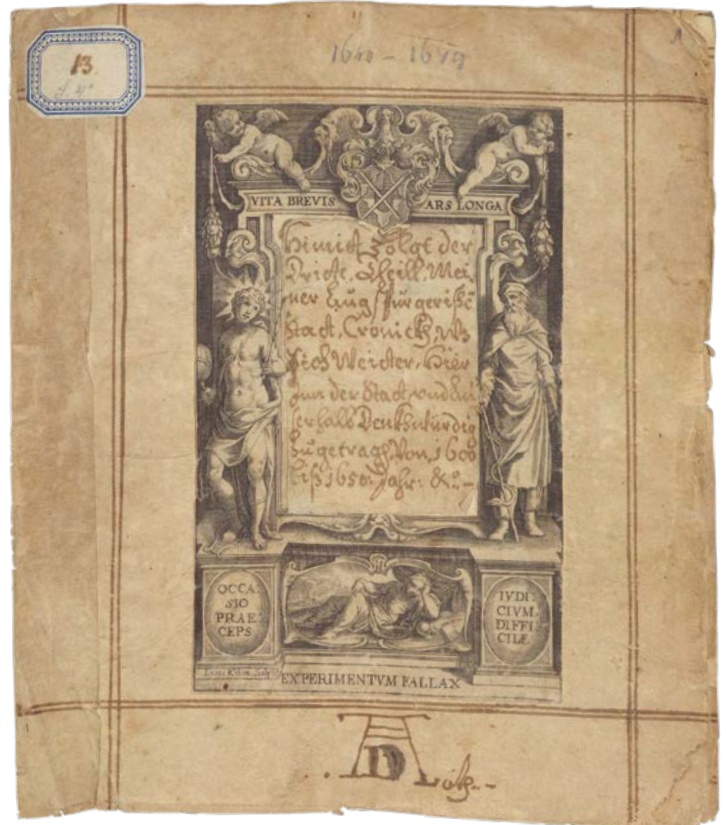 13.
1600 – 1649
VITA BREVIS ARS LONGA
Himit Volgt der
Dricte, Theill, Mei
ner Augspurgerische
Statt, Cronickh, Was
sich Weitter, Hier
Inn der Statt, vnd Au
serhalb Denkhwürdig
Zugetrag Von, 1600
biß 1650. Jahr: &c:
OCCA:
SIO
PRAE:
CEPS
IVDI:
CIVM.
DIFFI:
CILE.
EXPERIMENTVM FALLAX
AD